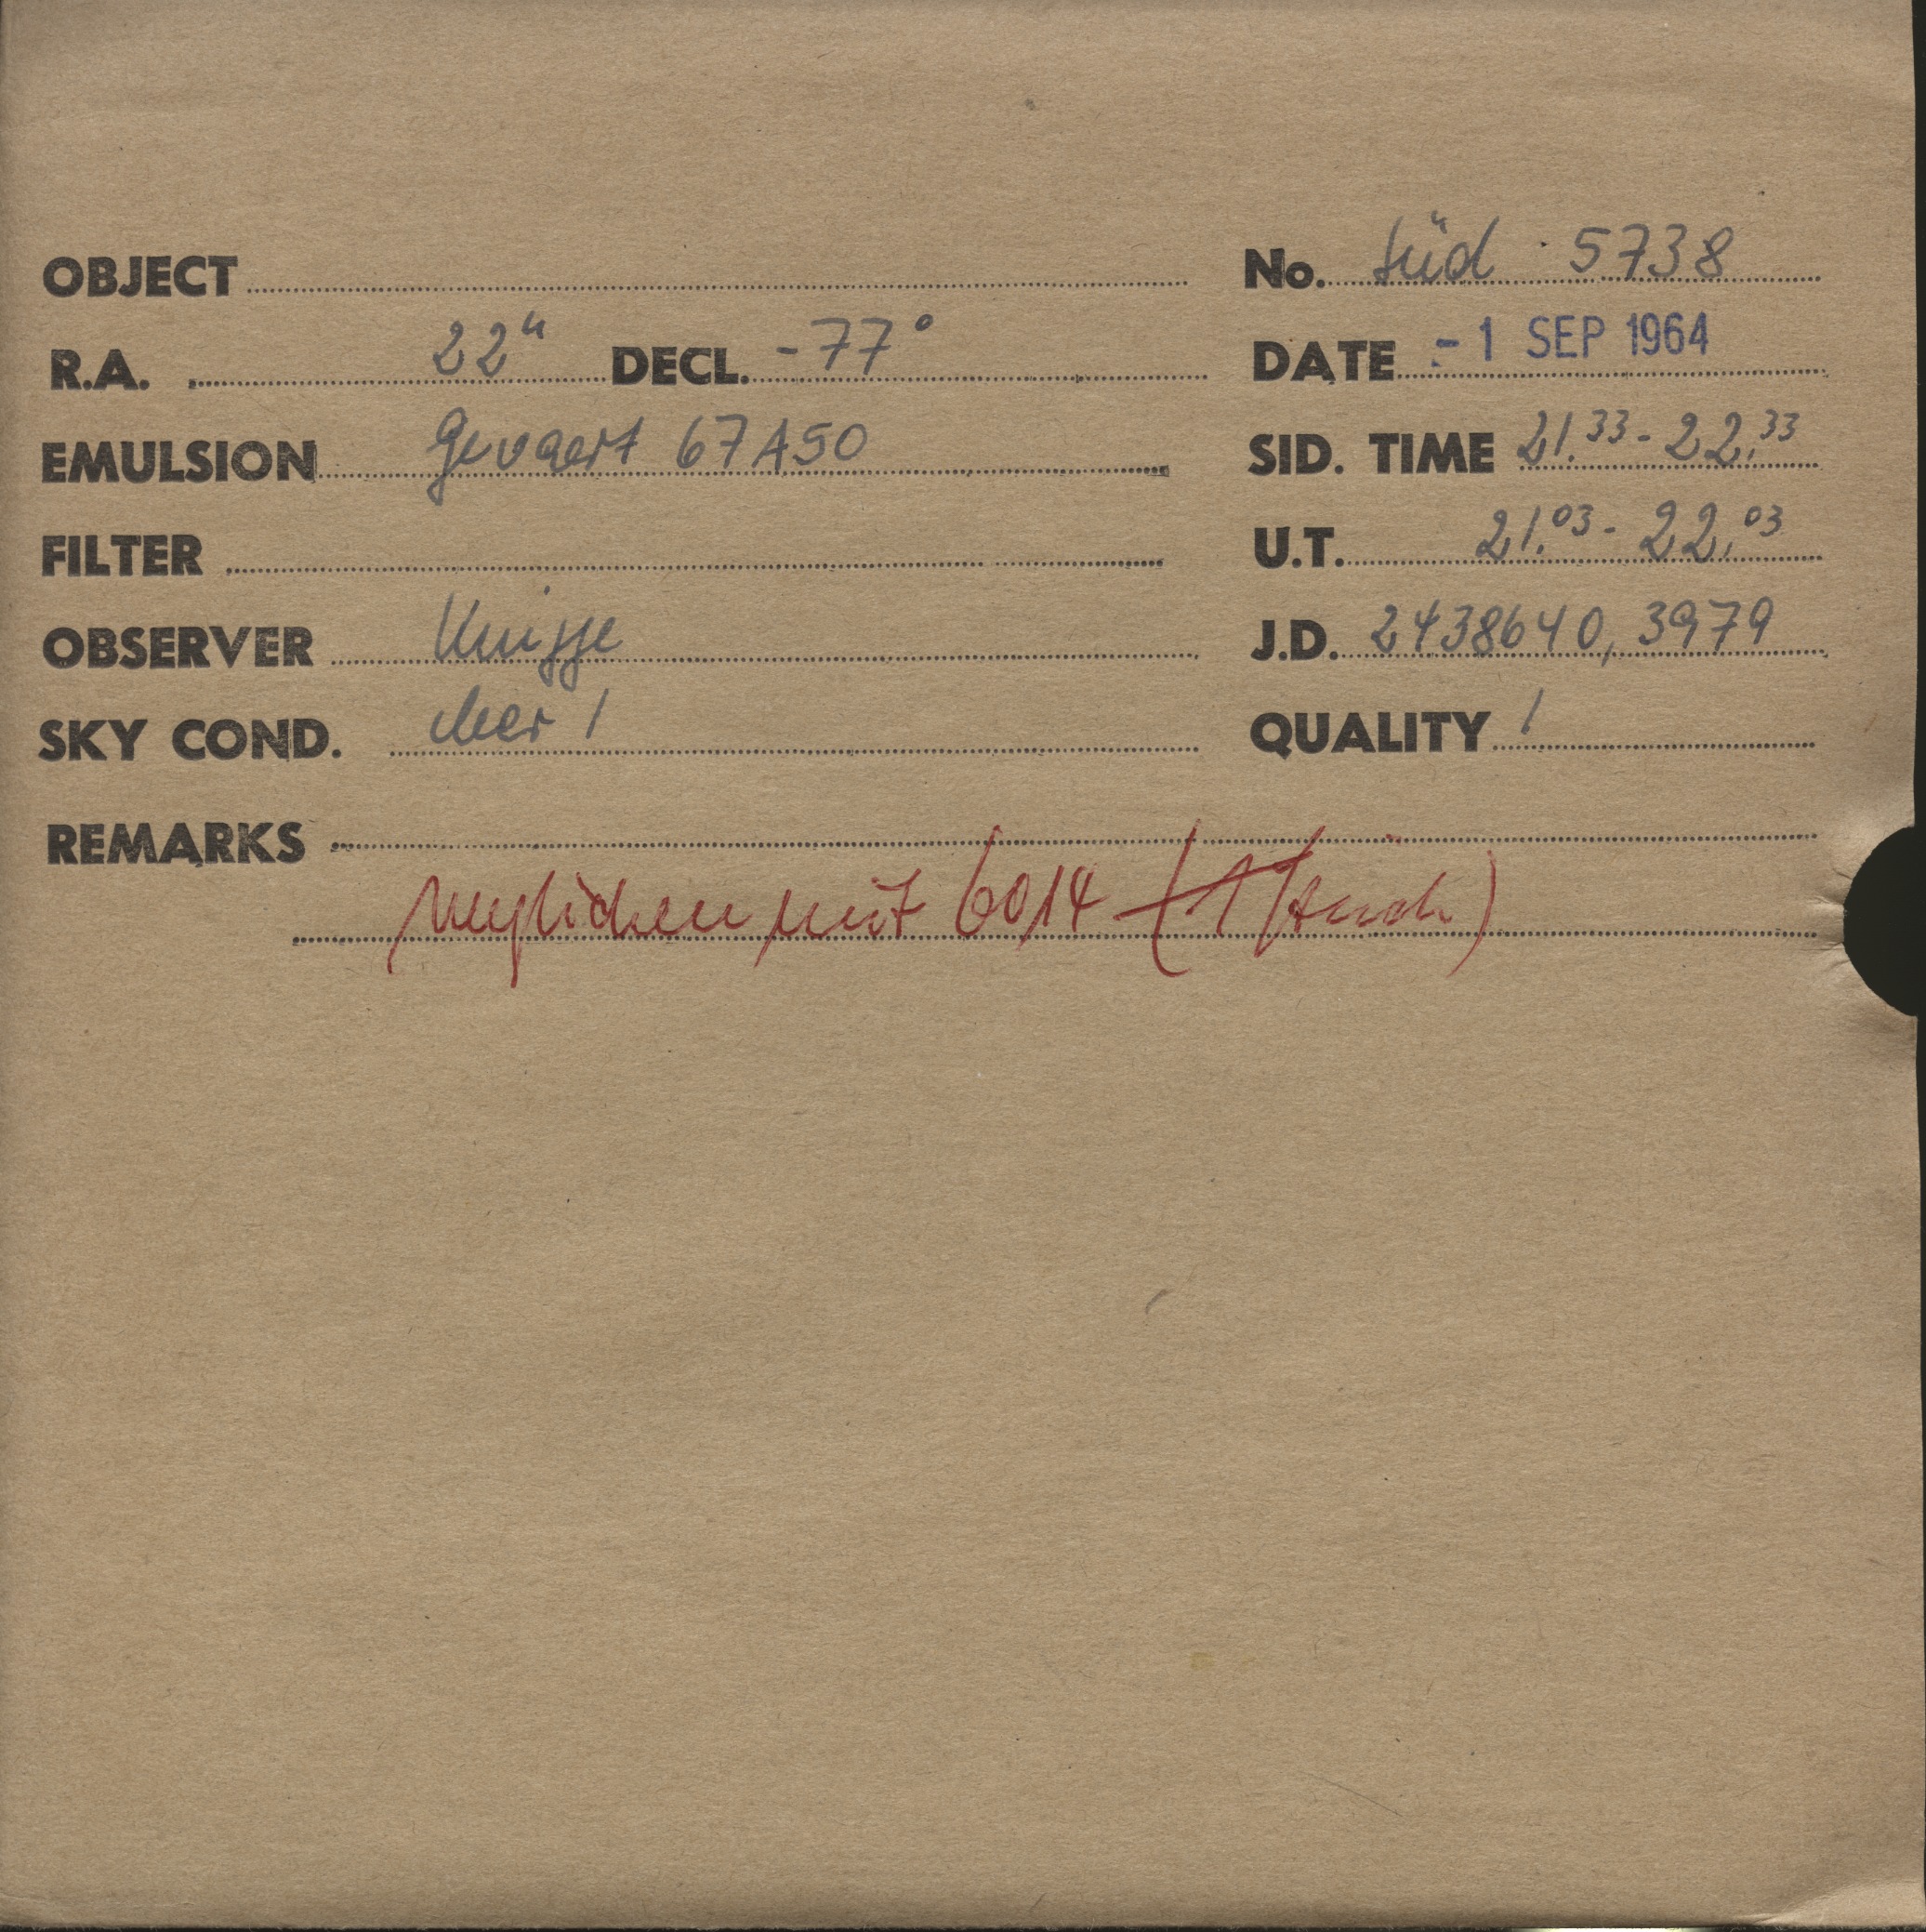 OBJECT No. Süd 5738
R.A. 22h DECL. -77° DATE -1 SEP 1964
EMULSION Gevaert 67A50 SID. TIME 21.33 - 22.33
FILTER U.T. 21.03 - 22.03
OBSERVER Knigge J.D. 2438640,3979
SKY COND. clear 1 QUALITY 1
REMARKS
verglichen mit 6014 (